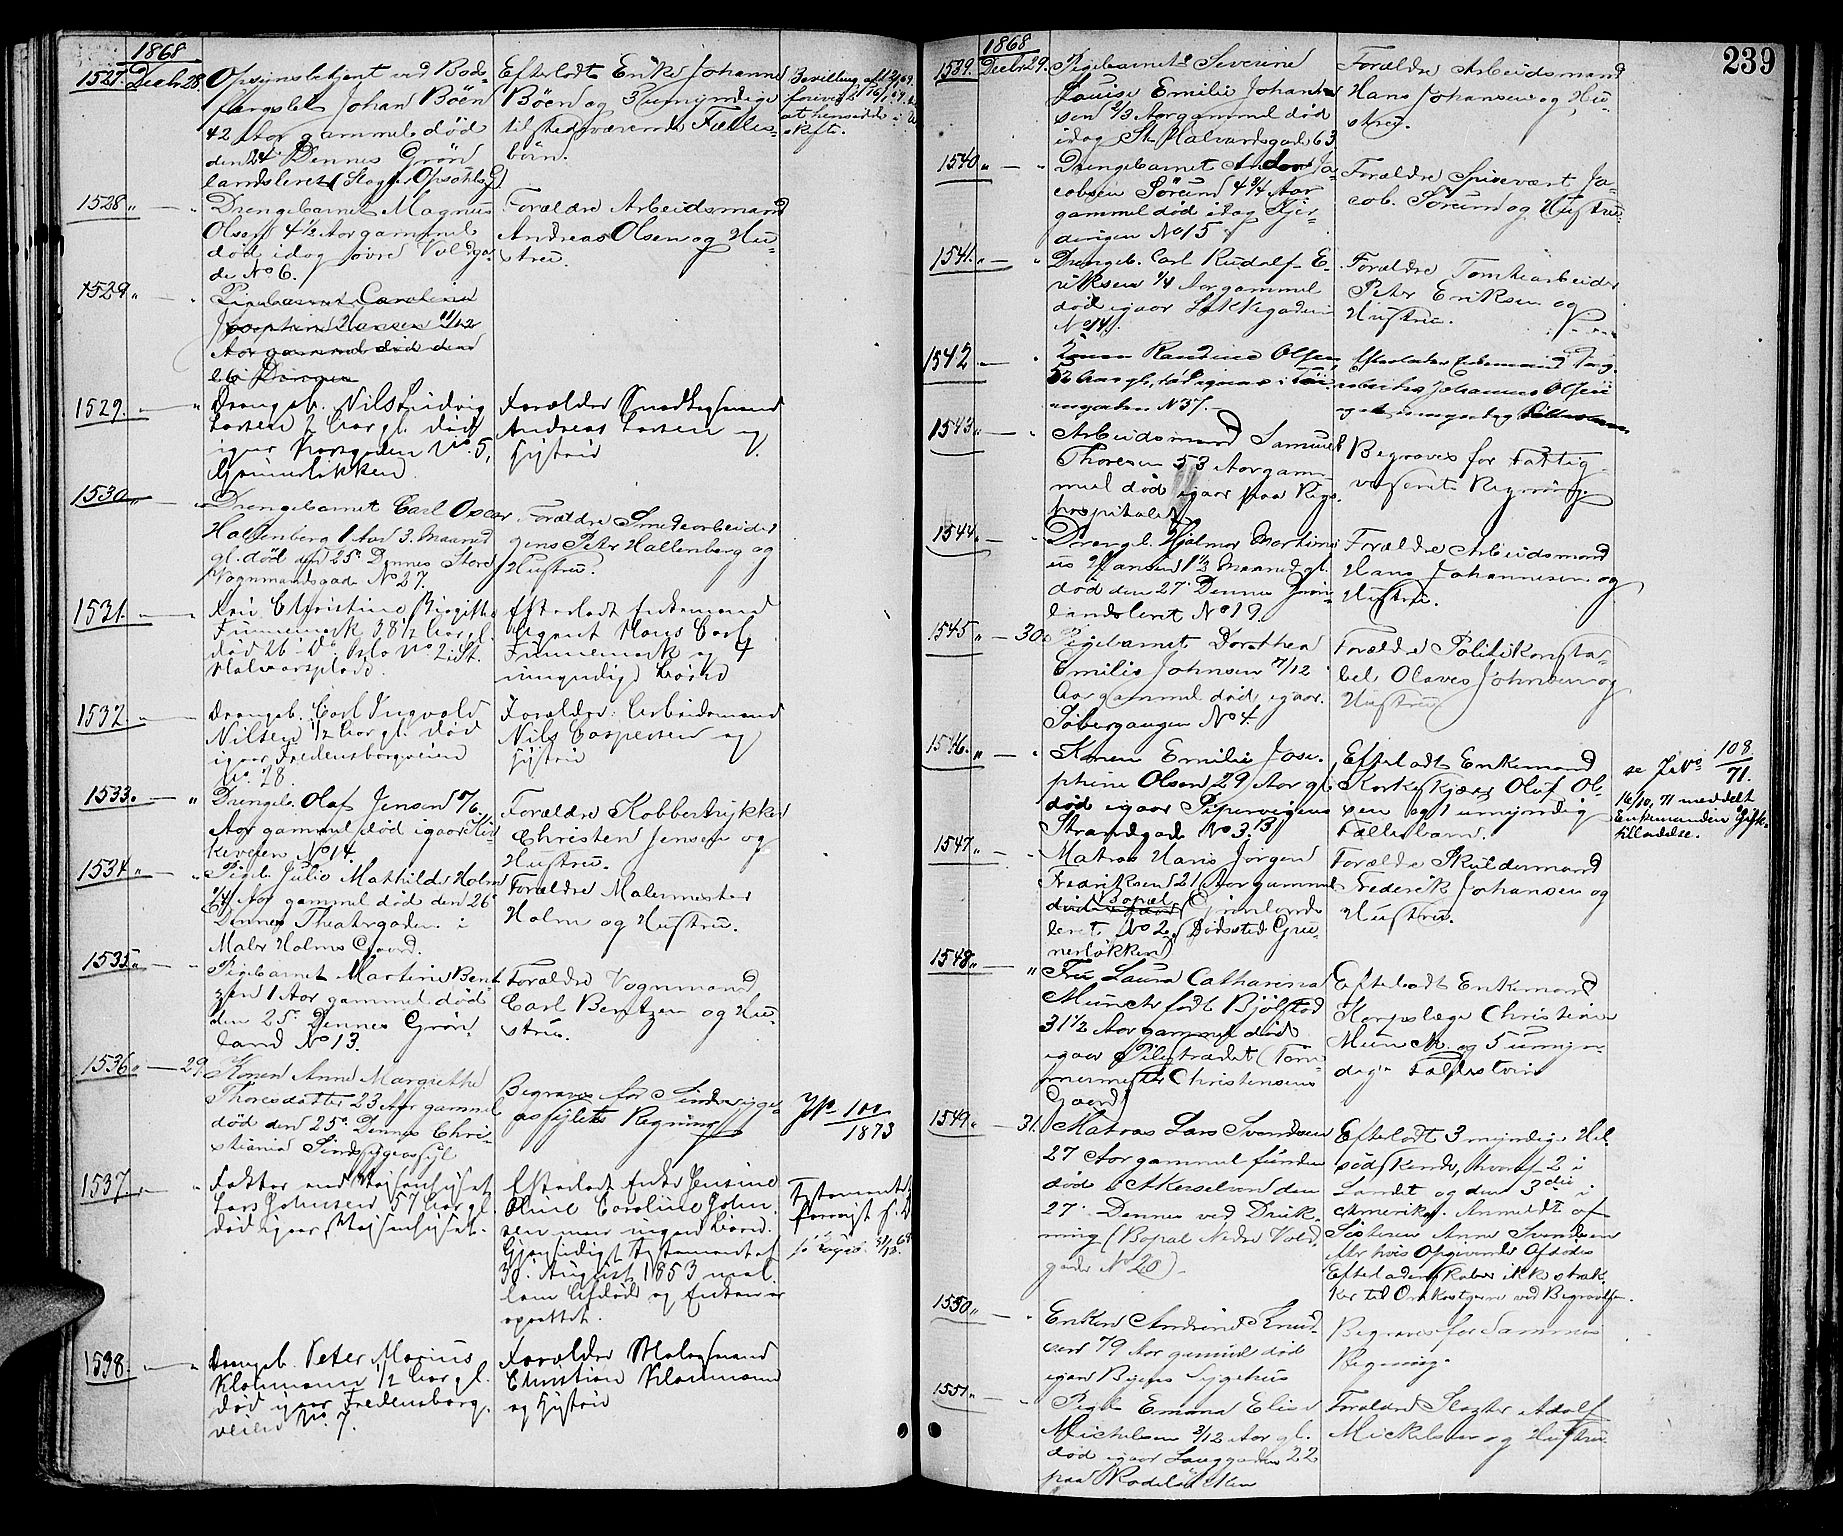 1868
1527. Decbr 28.
Opsynsbetjent ved Bods-
fængslet Johan Böen
42 Aar gammel död
den 24' Dennes Grön
landsleret (Slagter Opsahls G)
Efterladt Enke Johanne
Böen og 3 umyndige
tilstedeværende Fælles-
börn.
1528 " — "
Drengebarnet Magnus
Olsen 4 1/2 Aar gammel
död idag övre Voldga-
de No 6.
Forældre Arbeidsmand
Andreas Olsen og Hu-
stru.
1529 " — "
Pigebarnet Caroline
Josephine Hansen 11/12
Aar gammel död den
26' Dennes
1529. — "
Drengeb. Nils Ludvig
Larsen 1/2 Aar gl. död
igaar Korsgaden No. 5,
Grünerløkken
Forældre
Andreas Larsen og
Hustru
1530 " — "
Drengebarnet Carl Oscar
Hallenberg 1 Aar 3 Maaned
gl. död den 25' Dennes Store
Vognmandsgade No 27.
Forældre Smedearbeider
Jens Peter Hallenberg og
Hustru.
1531. — "
Fru Christine Birgitte
Finnemark 38 1/2 Aar gl.
död 26' Ds. Oslo No. 2 i St.
Halvarsplads.
Efterladt Enkemand
Agent Hans Carl
Finnemark og 4
umyndige Börn
1532. — "
Drengeb. Carl Ingvald
Nilsen 1/2 Aar gl. död
igaar Fredensborgveien
No. 28.
Forældre: Arbeidsmand
Nils Caspersen og
Hustru
1533. — "
Drengeb. Olaf Jensen 5/6
Aar gammel död igaar Kir-
keveien No 14.
Forældre Kobbertrykker
Christen Jensen og
Hustru.
1534 " — "
Pigeb. Julie Mathilde Holm
1/4 Aar gammel död den 26'
Dennes Theatergaden i
Maler Holms Gaard.
Forældre Malermester
Holm og Hustru.
1535 " — "
Pigebarnet Martine Bent
zen 1 Aar gammel död
den 25' Dennes Grön-
land No 13.
Forældre Vognmand
Carl Bentzen og Hu-
stru.
1536 " — 29.
Konen Anne Margrethe
Thoresdatter 23 Aar gammel
död den 25' Dennes Chri-
stiania Sindssygeasyl
Begraves for Sindssyge-
asylets Regning
1873
1537 " — "
Faktor ved Vaisenhuset
Lars Johnsen 57 Aar gl.
död igaar Vaisenhuset.
Efterladt Enke Jensine
Oline Caroline John-
sen men ingen Börn.
Gjensidigt Testament af
30. August 1853 mel-
lem Afdöde og Enken er
oprettet.
1538. — "
Drengeb. Peter Marius
Klanmann 1/2 Aar gl.
död igaar Fredensborg-
veien No. 7.
Forældre
Christian Klanmann
og Hustru
239
1868
1539. Decbr 29.
Pigebarnet Severine
Louise Emilie Johan-
sen 2/3 Aar gammel död
idag St. Halvardsgade 63
Forældre Arbeidsmand
Hans Johansen og Hu-
stru.
1540 " — "
Drengebarnet Andor Ja-
cobsen Sörum 4 3/4 Aar
gammel död idag Fjer-
dingen No 15
Forældre Spisevært Ja-
cob. Sörum og Hustru.
1541. " — "
Drengeb. Carl Rudolf E-
riksen 1/4 Aar gammel
död igaar Lakkegaden
No 14.
Forældre Tomtearbeider
Peter Eriksen og
Hustru.
1542 — "
Konen Randine Olsen,
52 Aar gl., död igaar i
No 37. —
Efterlader Enkemand
Johannes Olsen
1543 " — "
Arbeidsmand Samuel
Thoresen 53 Aar gam-
mel död igaar paa Rigs-
hospitalet
Begraves for Fattig-
væsenets Regning.
1544 " — "
Drengeb. Hjalmar Martini-
us Hansen 1 1/2 Maaned gl.
död den 27' Dennes Grön-
landsleret No 19.
Forældre Arbeidsmand
Hans Johannesen og
Hustru.
1545 " — 30.
Pigebarnet Dorothea
Emilie Johnsen 7/12
Aar gammel död igaar.
Röbergangen No 4.
Forældre Politikonsta-
bel Olaves Johnsen og
Hustru
1546. " — "
Konen Emilie Jose-
phine Olsen 29 Aar gl.
död igaar Pipervigens
Strandgade No 3.B
Efterladt Enkemand
Korkeskjærer Oluf Ol-
sen og 1 umyndig
Fællesbarn.
se J.No 108/71.
16/10, 71 meddelt
Enkemanden Gifte-
tilladelse.
1547 " — "
Matros Hans Jörgen
Fredriksen 21 Aar gammel
död igaar (Bopæl Grönlands
leret No 2. Dödssted Grü-
nerløkken)
Forældre Skildermand
Frederik Johansen og
Hustru.
1548 " — "
Fru Laura Catharina
Münch födt Bjölstad
31 1/2 Aar gammel död
igaar Pilestrædet (Töm-
mermester Christensens
Gaard)
Efterladt Enkemand
Korpslæge Christian
Münch og 5 umyn-
dige Fællesbörn
1549 " — 31.
Matros Lars Svendsen
27 Aar gammel funden
död i Akerselven den
27' Dennes ved Druk-
ning (Bopæl Nedre Vold-
gade No 20).
Efterladt 3 myndige Hel-
södskende, hvoraf 2 i
Landet og den 3die i
Amerika. Anmeldt af
Søsteren Anne Svendsen
efter hvis Opgivende Afdödes
Efterladenskaber ikke stræk-
ker til Omkostgerne ved Begravelsen.
1550 " — "
Enken Andrine Knud-
sen 79 Aar gammel död
igaar Byens Sygehus
Begraves for Sammes
Regning.
1551 " — "
Pigeb. Emma Elise
Michelsen 3/12 Aar gl.
död igaar Langgaden 22
paa Rodeløkken
Forældre Slagter Adolf
Mickelsen og Hustru.